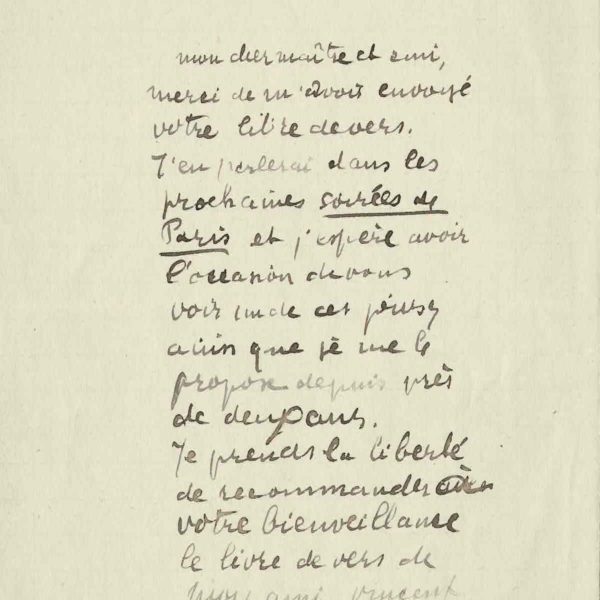 mon cher maître et ami,
merci de m'avoir envoyé
votre livre de vers.
J'en parlerai dans les
prochaines soirées de
Paris et j'espère avoir
l'occasion de vous
voir un de ces jours
ainsi que je me le
propose depuis près
de deux ans.
Je prends la liberté
de recommander à
votre bienveillance
le livre de vers de
mon ami vincent